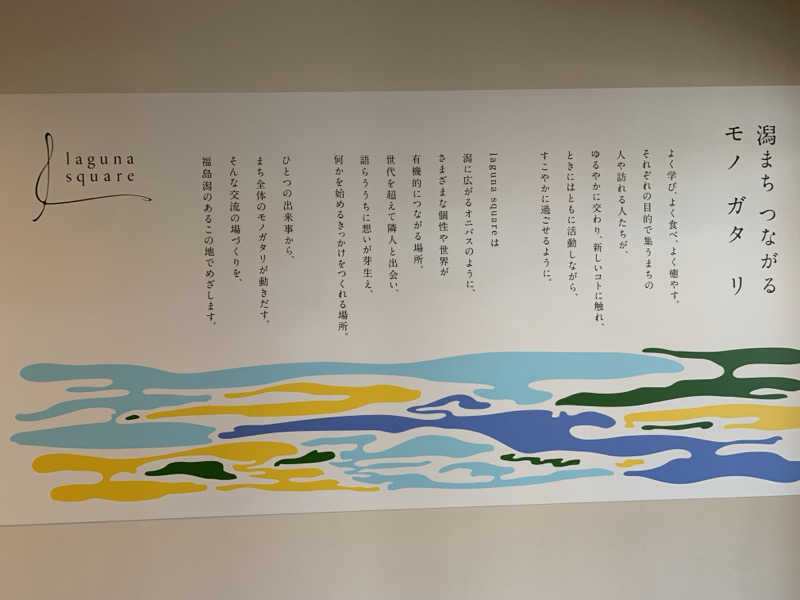 潟まち つながる
モノガタリ
よく学び、よく食べ、よく癒やす。
それぞれの目的で集うまちの
人や訪れる人たちが、
ゆるやかに交わり、新しいコトに触れ、
ときにはともに活動しながら、
すこやかに過ごせるように。
laguna squareは
潟に広がるオニバスのように、
さまざまな個性や世界が
有機的につながる場所。
世代を超えて隣人と出会い、
語らううちに想いが芽生え、
何かを始めるきっかけをつくれる場所。
ひとつの出来事から、
まち全体のモノガタリが動きだす。
そんな交流の場づくりを、
福島潟のあるこの地でめざします。
laguna
square